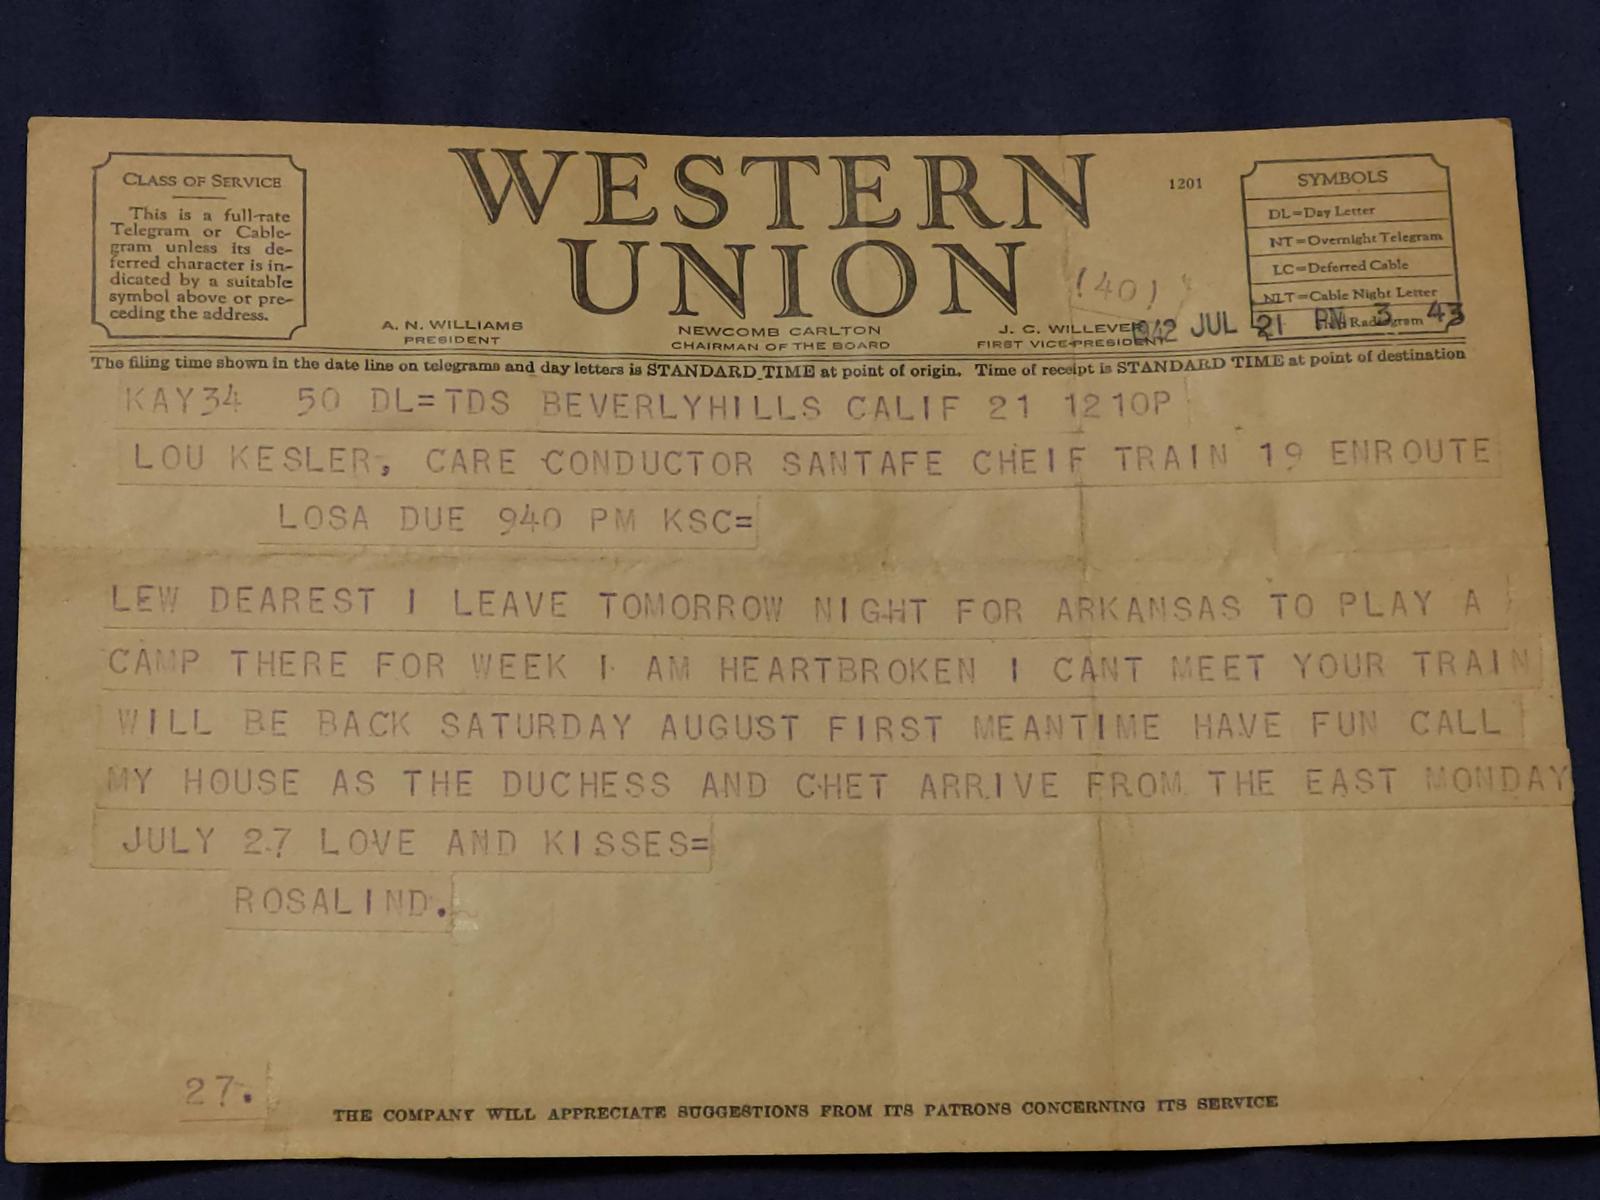 CLASS OF SERVICE
This is a full-rate
Telegram or Cable-
gram unless its de-
ferred character is in-
dicated by a suitable
symbol above or pre-
ceding the address.
WESTERN
UNION
1201
(40)
A. N. WILLIAMS
PRESIDENT
NEWCOMB CARLTON
CHAIRMAN OF THE BOARD
J. C. WILLEVER
FIRST VICE-PRESIDENT
SYMBOLS
DL=Day Letter
NT=Overnight Telegram
LC=Deferred Cable
NLT=Cable Night Letter
Radiogram
1942 JUL 21 PM 3 43
The filing time shown in the date line on telegrams and day letters is STANDARD TIME at point of origin. Time of receipt is STANDARD TIME at point of destination
KAY34 50 DL=TDS BEVERLYHILLS CALIF 21 1210P
LOU KESLER, CARE CONDUCTOR SANTAFE CHEIF TRAIN 19 ENROUTE
LOSA DUE 940 PM KSC=
LEW DEAREST I LEAVE TOMORROW NIGHT FOR ARKANSAS TO PLAY A
CAMP THERE FOR WEEK I AM HEARTBROKEN I CANT MEET YOUR TRAIN
WILL BE BACK SATURDAY AUGUST FIRST MEANTIME HAVE FUN CALL
MY HOUSE AS THE DUCHESS AND CHET ARRIVE FROM THE EAST MONDAY
JULY 27 LOVE AND KISSES=
ROSALIND.
27.
THE COMPANY WILL APPRECIATE SUGGESTIONS FROM ITS PATRONS CONCERNING ITS SERVICE